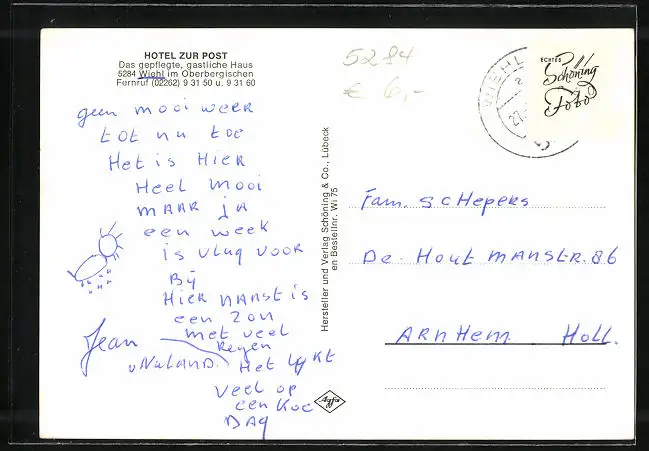 HOTEL ZUR POST
Das gepflegte, gastliche Haus
5284 Wiehl im Oberbergischen
Fernruf (02262) 9 31 50 u. 9 31 60
geen mooi weer
tot nu toe
Het is HIER
Heel mooi
MAAR ja
een week
is vlug voor
Bij
HIER NAAST is
een zon
met veel
Regen
Het lijkt
veel op
een koe
DAG
Jean
v NULAND.
Hersteller und Verlag Schöning & Co., Lübeck
en Bestellnr. Wi 75
Agfa
5284
€ 6,-
WIEHL
27.
ECHTES
Schöning
Foto
Fam. SCHEPERS
De. Hout MANSTR. 86
ARNHEM HOLL.